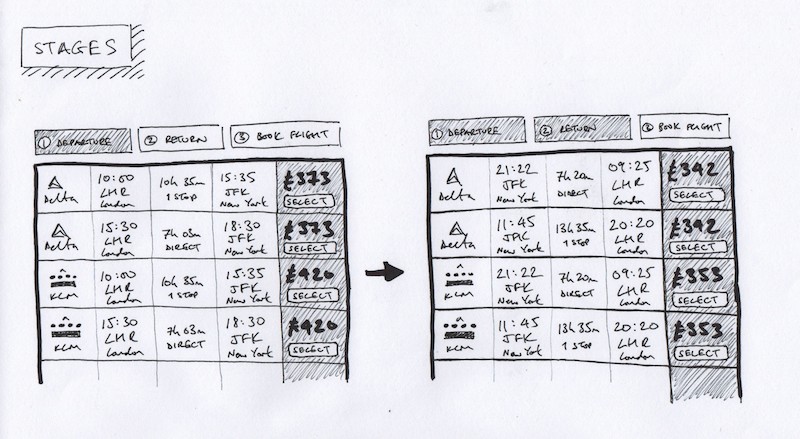 STAGES
① DEPARTURE ② RETURN ③ BOOK FLIGHT
Delta 10:00 LHR London 10h 35m 1 STOP 15:35 JFK New York £373 SELECT
Delta 15:30 LHR London 7h 03m DIRECT 18:30 JFK New York £373 SELECT
KLM 10:00 LHR London 10h 35m 1 STOP 15:35 JFK New York £420 SELECT
KLM 15:30 LHR London 7h 03m DIRECT 18:30 JFK New York £420 SELECT
① DEPARTURE ② RETURN ③ BOOK FLIGHT
Delta 21:22 JFK New York 7h 20m DIRECT 09:25 LHR London £392 SELECT
Delta 11:45 JFK New York 13h 35m 1 STOP 20:20 LHR London £392 SELECT
KLM 21:22 JFK New York 7h 20m DIRECT 09:25 LHR London £353 SELECT
KLM 11:45 JFK New York 13h 35m 1 STOP 20:20 LHR London £353 SELECT